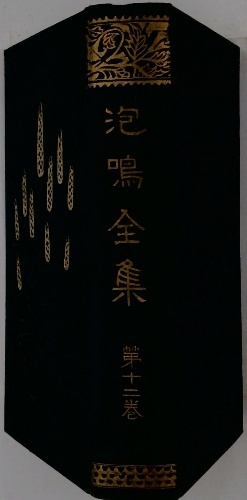 泡鳴全集
第十二巻